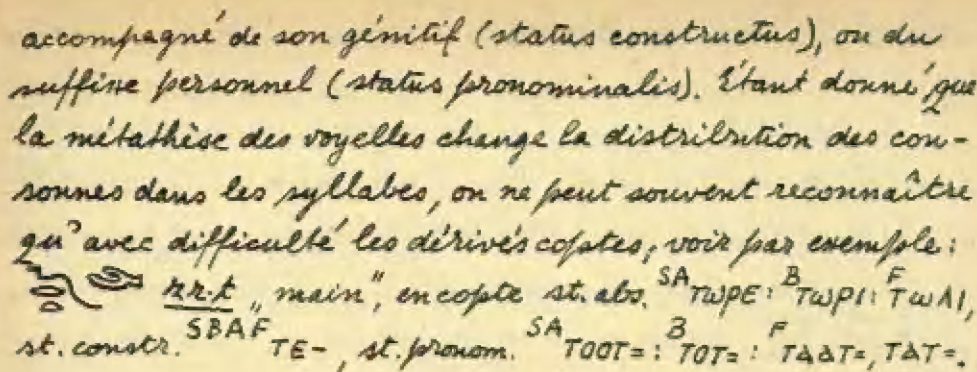 accompagné de son génitif (status constructus), ou du
suffixe personnel (status pronominalis). Étant donné, que
la métathèse des voyelles change la distribution des con-
sonnes dans les syllabes, on ne peut souvent reconnaître
qu'avec difficulté les dérivés coptes, voir par exemple:
„main", en copte st. abs. SA ⲧⲱⲣⲉ: B ⲧⲱⲣⲓ: F ⲧⲱⲗⲓ,
st. constr. SBAF ⲧⲉ-, st. pronom. SA ⲧⲟⲟⲧ=: B ⲧⲟⲧ=: F ⲧⲁⲁⲧ=, ⲧⲁⲧ=.